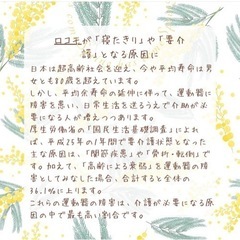 ロコモが「寝たきり」や「要介
護」となる原因に
日本は超高齢社会を迎え、今や平均寿命は男
女とも80歳を超えています。
しかし、平均余命の延伸に伴って、運動器に
障害を患い、日常生活を送るうえで介助が必
要になる人が増えつつあります。
厚生労働省の「国民生活基礎調査」によれ
ば、平成25年の1年間で要介護状態となった
主な原因は、「関節疾患」や「骨折・転倒」で
す。加えて、「高齢による衰弱」を運動器の障
害としてみなした場合、合計すると全体の
36.1%に上ります。
これらの運動器の障害は、介護が必要になる原
因の中で最も高い割合です。